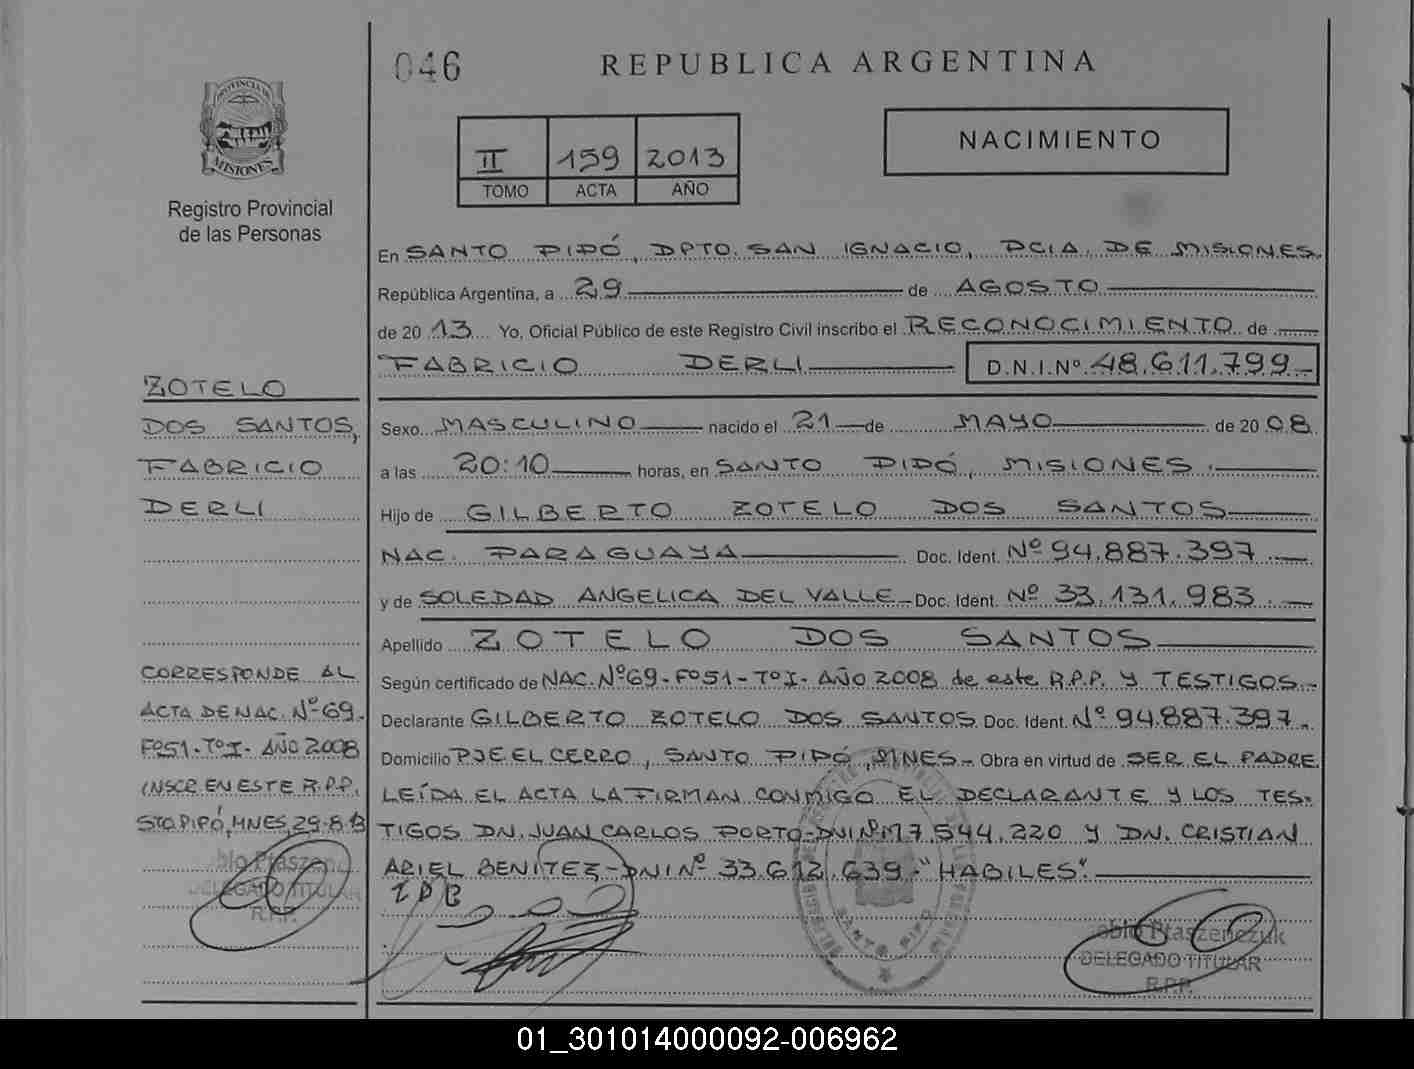 046
REPUBLICA ARGENTINA
PROVINCIA DE
MISIONES
Registro Provincial
de las Personas
II 159 2013
TOMO ACTA AÑO
NACIMIENTO
En SANTO PIPÓ, DPTO. SAN IGNACIO, PCIA. DE MISIONES.
República Argentina, a 29 de AGOSTO
de 2013 Yo, Oficial Público de este Registro Civil inscribo el RECONOCIMIENTO de
FABRICIO DERLI D.N.I.Nº 48.611.799
Sexo MASCULINO nacido el 21 de MAYO de 2008
a las 20:10 horas, en SANTO PIPÓ, MISIONES.
Hijo de GILBERTO ZOTELO DOS SANTOS
NAC. PARAGUAYA Doc. Ident. Nº 94.887.397
y de SOLEDAD ANGELICA DEL VALLE Doc. Ident. Nº 33.131.983
Apellido ZOTELO DOS SANTOS
Según certificado de NAC. Nº69-Fº51-TºI-AÑO 2008 de este R.P.P. Y TESTIGOS-
Declarante GILBERTO ZOTELO DOS SANTOS Doc. Ident. Nº 94.887.397
Domicilio PJE EL CERRO, SANTO PIPÓ, MNES- Obra en virtud de SER EL PADRE
LEÍDA EL ACTA LA FIRMAN CONMIGO EL DECLARANTE Y LOS TES-
TIGOS DN. JUAN CARLOS PORTO-DNI Nº 17.544.220 Y DN. CRISTIAN
ARIEL BENITEZ-DNI Nº 33.612.639. "HABILES".
ZOTELO
DOS SANTOS,
FABRICIO
DERLI
CORRESPONDE AL
ACTA DE NAC. Nº 69-
Fº51-TºI- AÑO 2008
INSCR EN ESTE R.P.P.
STO PIPÓ, MNES, 29-8-13
blo Ptaszenc
DELEGADO TITULAR
R.P.P.
SANTO PIPO
ablo Ptaszenczuk
DELEGADO TITULAR
R.P.P.
01_301014000092-006962